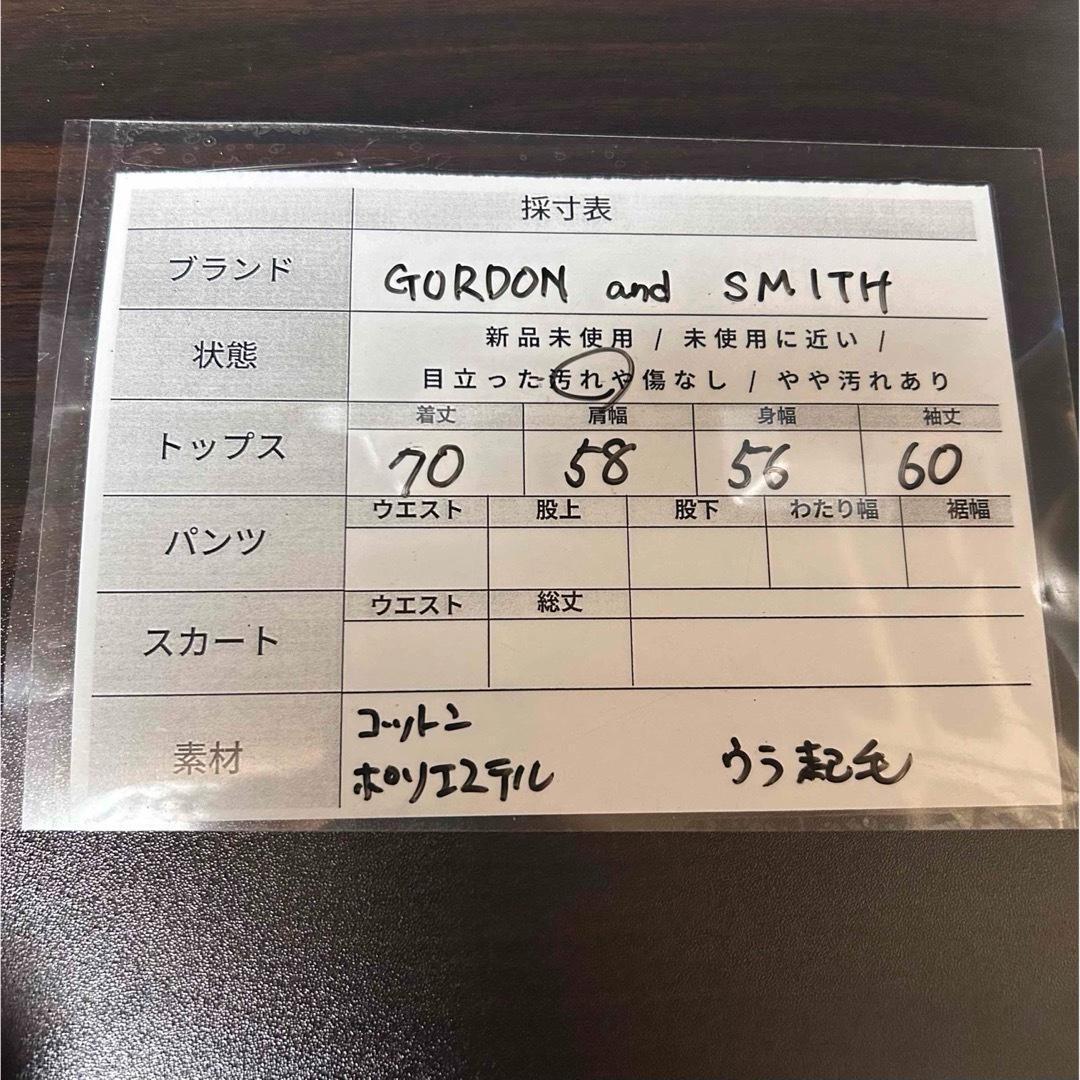 採寸表
ブランド GORDON and SMITH
状態 新品未使用 / 未使用に近い /
目立った汚れや傷なし / やや汚れあり
トップス 着丈 肩幅 身幅 袖丈
70 58 56 60
パンツ ウエスト 股上 股下 わたり幅 裾幅
スカート ウエスト 総丈
素材 コットン
ポリエステル ウラ起毛